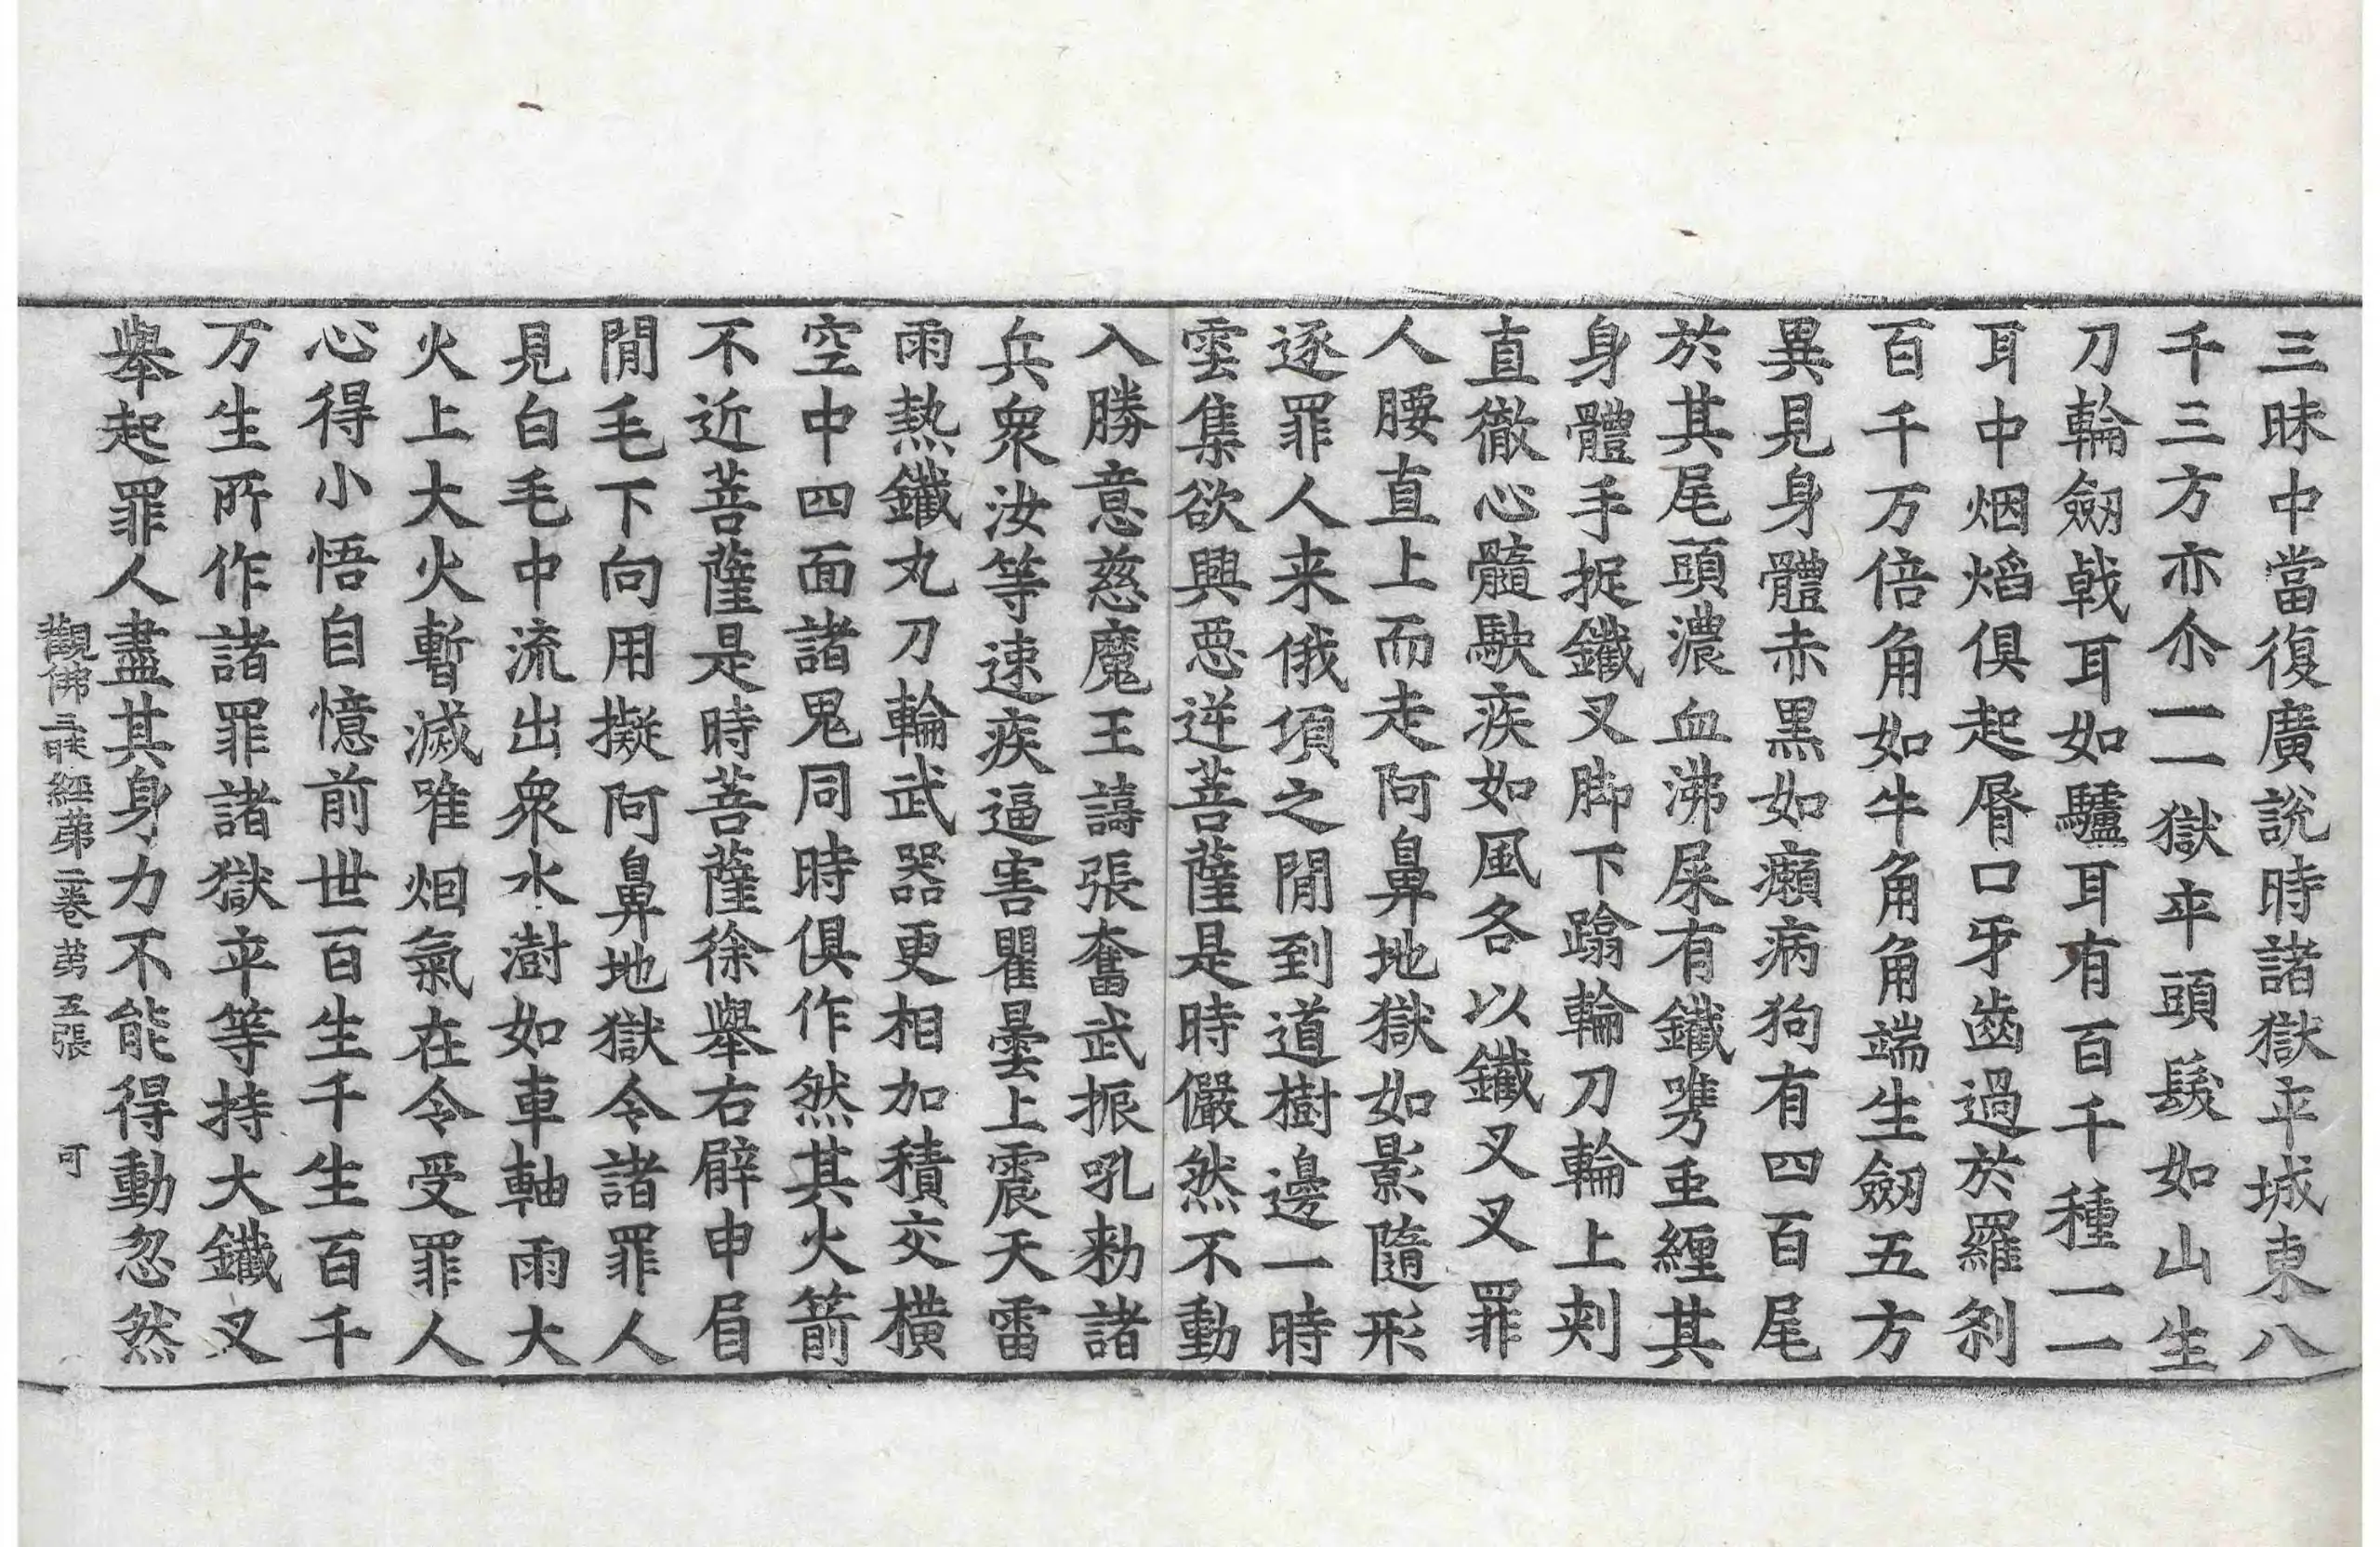 三昧中當復廣說時諸獄卒城東八
千三方亦尒一一獄卒頭髮如山生
刀輪劒戟耳如驢耳有百千種一一
耳中烟焰俱起脣口牙齒過於羅剎
百千万倍角如牛角角端生劒五方
異見身體赤黑如癩病狗有四百尾
於其尾頭濃血沸屎有鐵㗨垂纏其
身體手捉鐵叉脚下蹹輪刀輪上刾
直徹心髓駃疾如風各以鐵叉叉罪
人腰直上而走阿鼻地獄如影隨形
逐罪人来俄項之閒到道樹邊一時
雲集欲興惡逆菩薩是時儼然不動
入勝意慈魔王譸張奮武振吼勑諸
兵衆汝等速疾逼害瞿曇上震天雷
雨熱鐵丸刀輪武器更相加積交橫
空中四面諸鬼同時俱作然其火箭
不近菩薩是時菩薩徐舉右臂申眉
閒毛下向用擬阿鼻地獄令諸罪人
見白毛中流出衆水澍如車軸雨大
火上大火暫滅唯烟氣在令受罪人
心得小悟自憶前世百生千生百千
万生所作諸罪諸獄卒等持大鐵叉
舉起罪人盡其身力不能得動忽然
觀佛三昧經苐二卷 苐五張 可